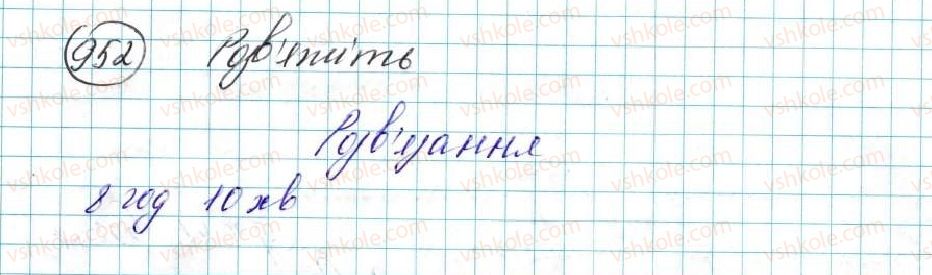 952 Розв'яжіть
Розв'язання
8 год 10 хв